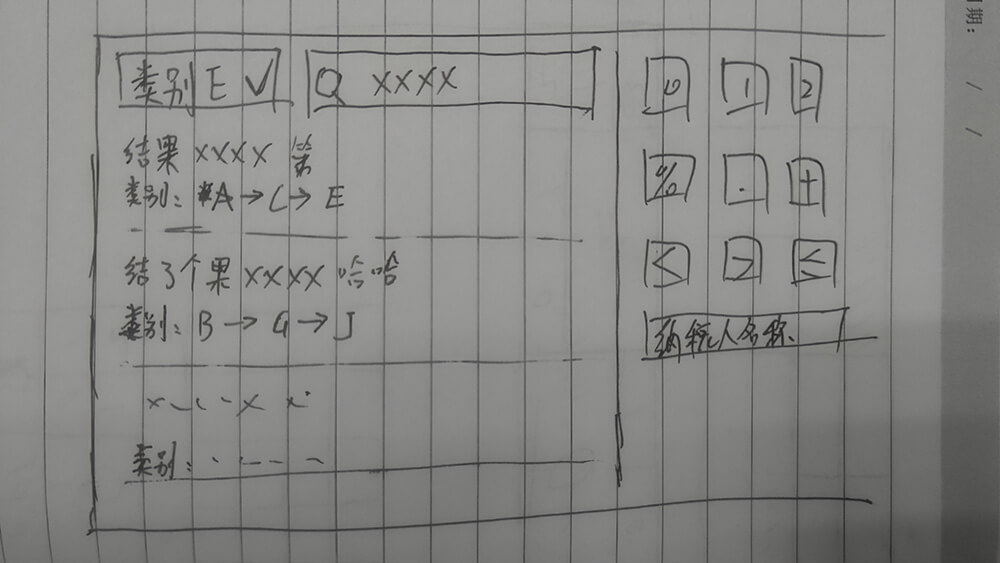 类别 E ✓
Q xxxx
结果 xxxx 第
类别: A → C → E
结了个果 xxxx 哈哈
类别: B → G → J
类别:
0 1 2
% . +
< > ≤
纳税人名称
期:
/ /